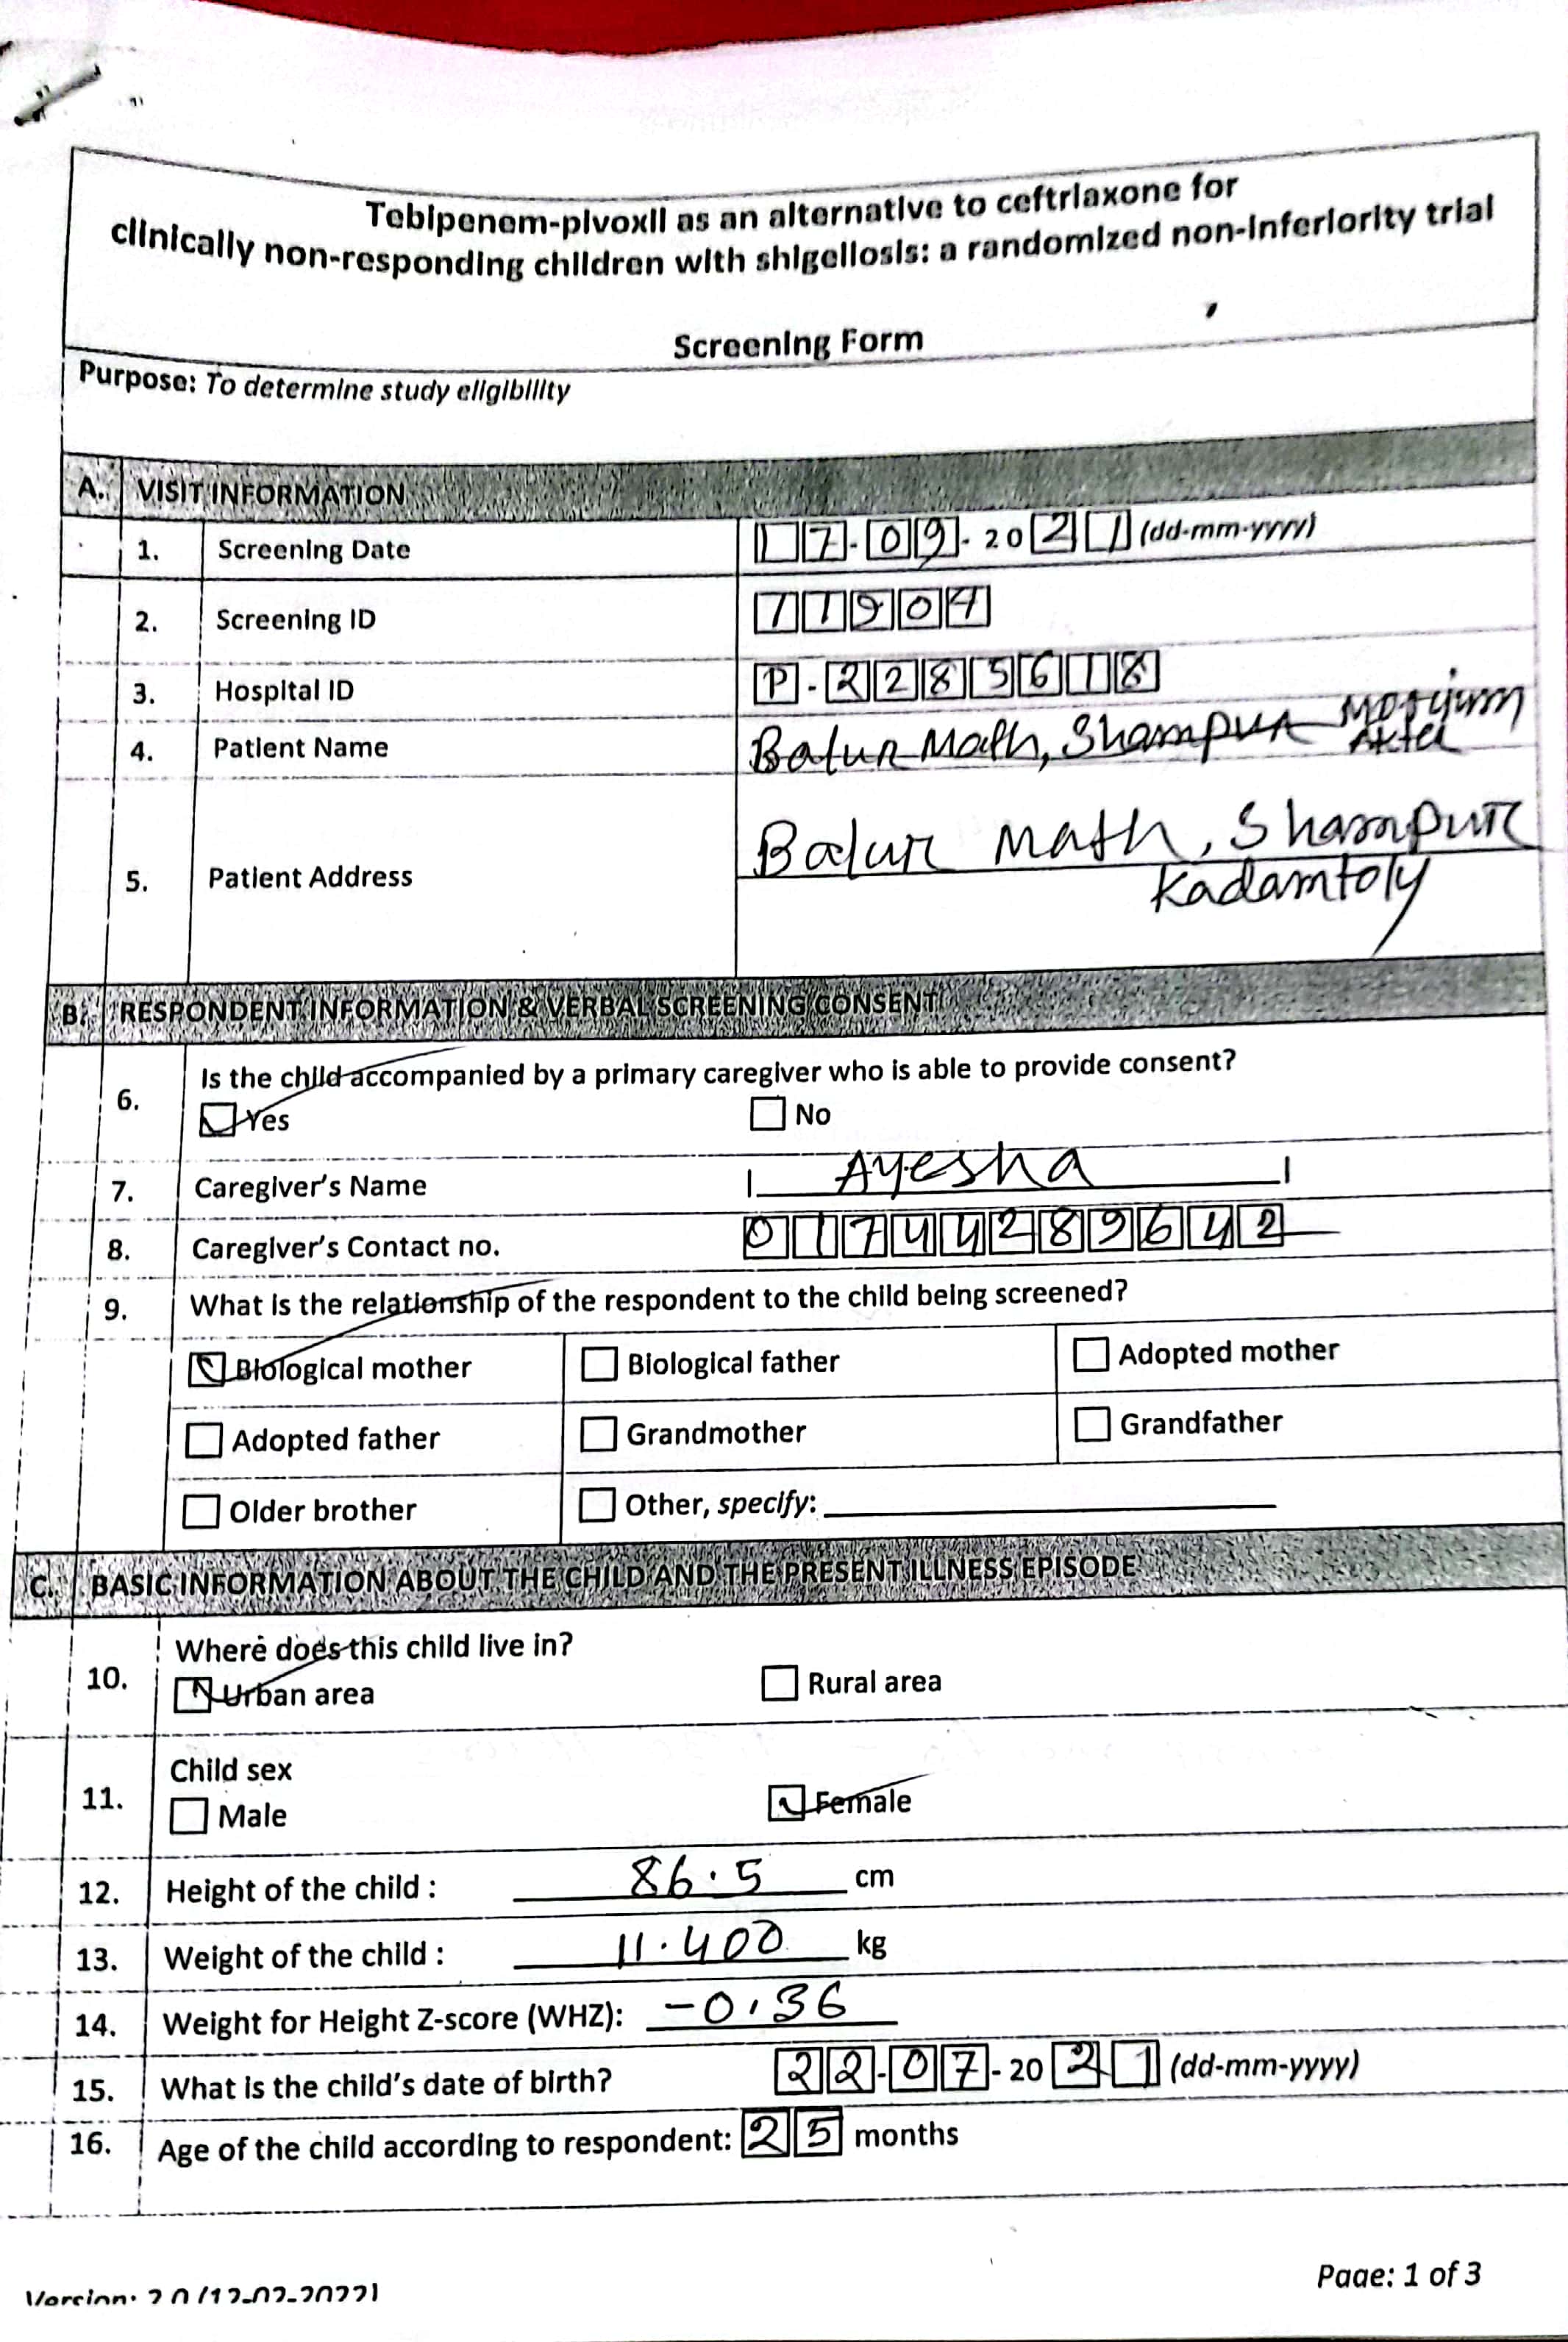 Tebipenem-pivoxil as an alternative to ceftriaxone for
clinically non-responding children with shigellosis: a randomized non-inferiority trial
Screening Form
Purpose: To determine study eligibility
A. VISIT INFORMATION
1. Screening Date 17-09-2021 (dd-mm-yyyy)
2. Screening ID 11904
3. Hospital ID P-2285618
4. Patient Name Balur Math, Shampur Morjium Akter
5. Patient Address Balur Math, Shampur
Kadamtoly
B. RESPONDENT INFORMATION & VERBAL SCREENING CONSENT
6. Is the child accompanied by a primary caregiver who is able to provide consent?
Yes No
7. Caregiver's Name Ayesha
8. Caregiver's Contact no. 01744289642
9. What is the relationship of the respondent to the child being screened?
Biological mother Biological father Adopted mother
Adopted father Grandmother Grandfather
Older brother Other, specify:
C. BASIC INFORMATION ABOUT THE CHILD AND THE PRESENT ILLNESS EPISODE
10. Where does this child live in?
Urban area Rural area
11. Child sex
Male Female
12. Height of the child : 86.5 cm
13. Weight of the child : 11.400 kg
14. Weight for Height Z-score (WHZ): -0.36
15. What is the child's date of birth? 22-07-2021 (dd-mm-yyyy)
16. Age of the child according to respondent: 25 months
Version: 2.0 (12-02-2022)
Page: 1 of 3